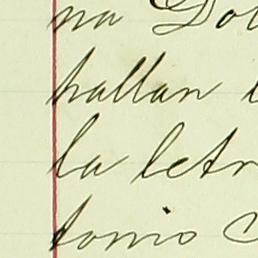 na Do
hallan
la letr
tonio